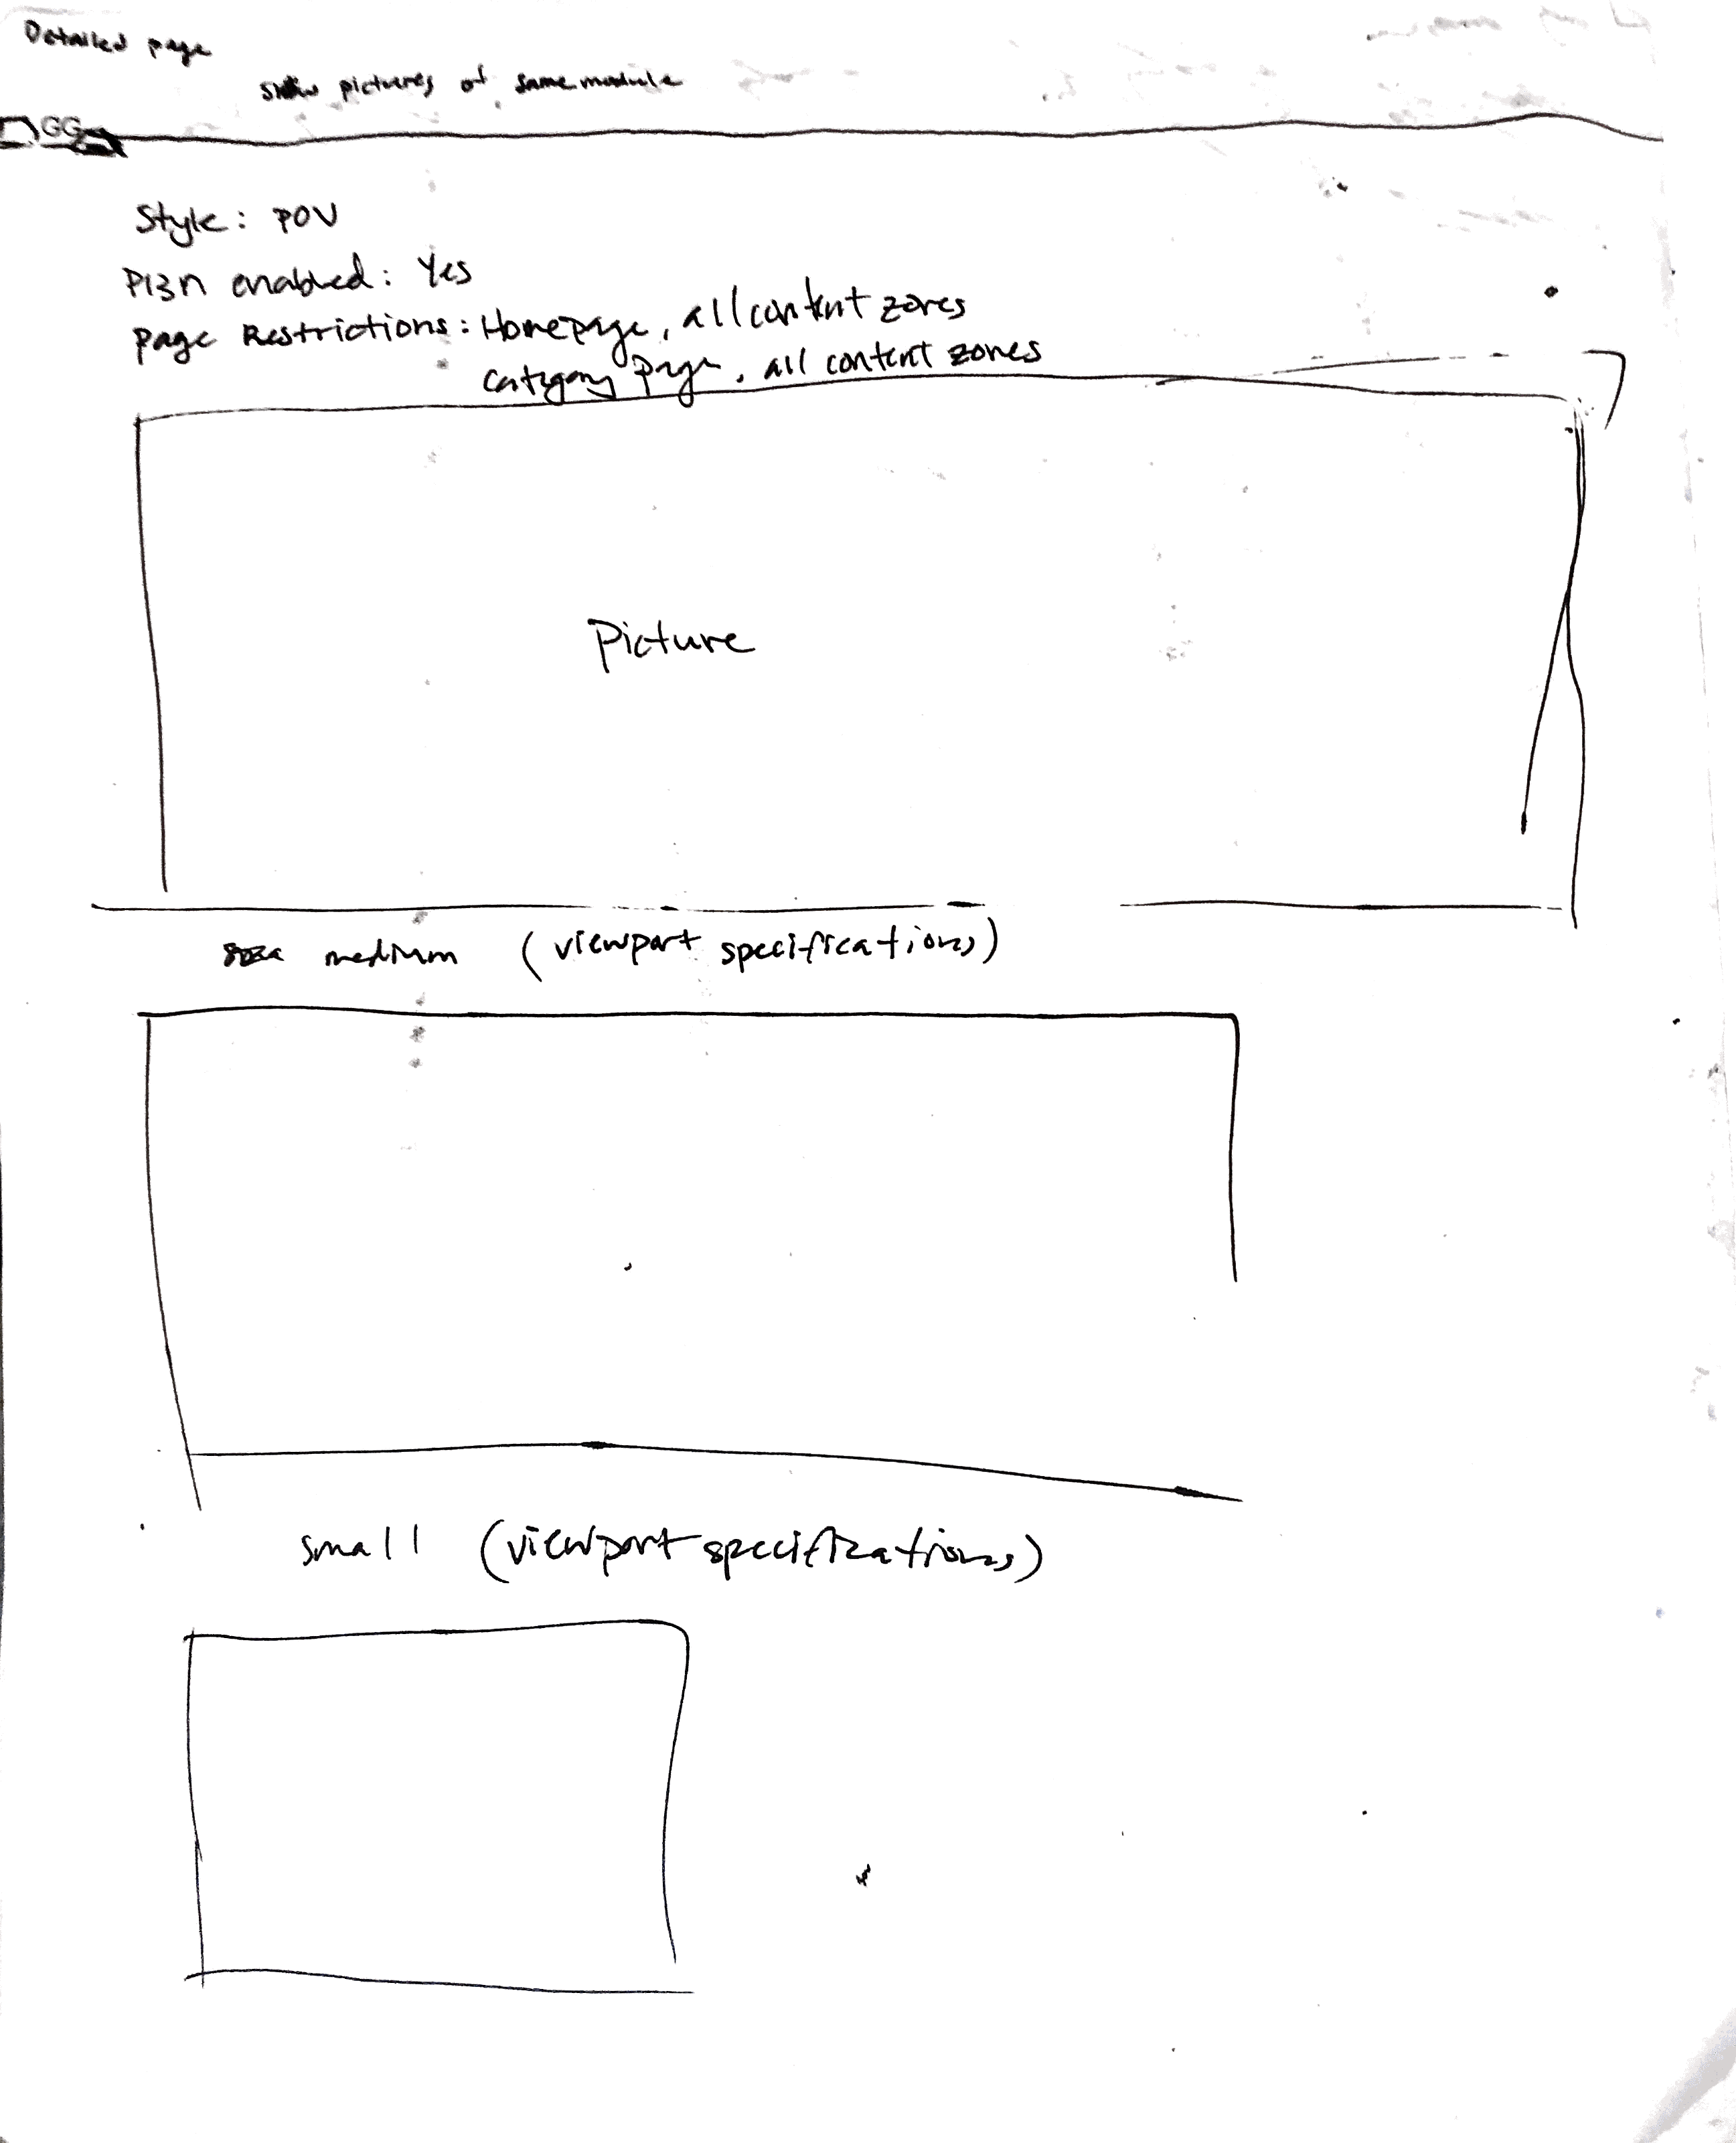 Detailed page
show pictures of same module
GG
Style: POV
P13n enabled: Yes
Page Restrictions: Homepage, all content zones
Category page, all content zones
Picture
medium (viewport specifications)
small (viewport specifications)